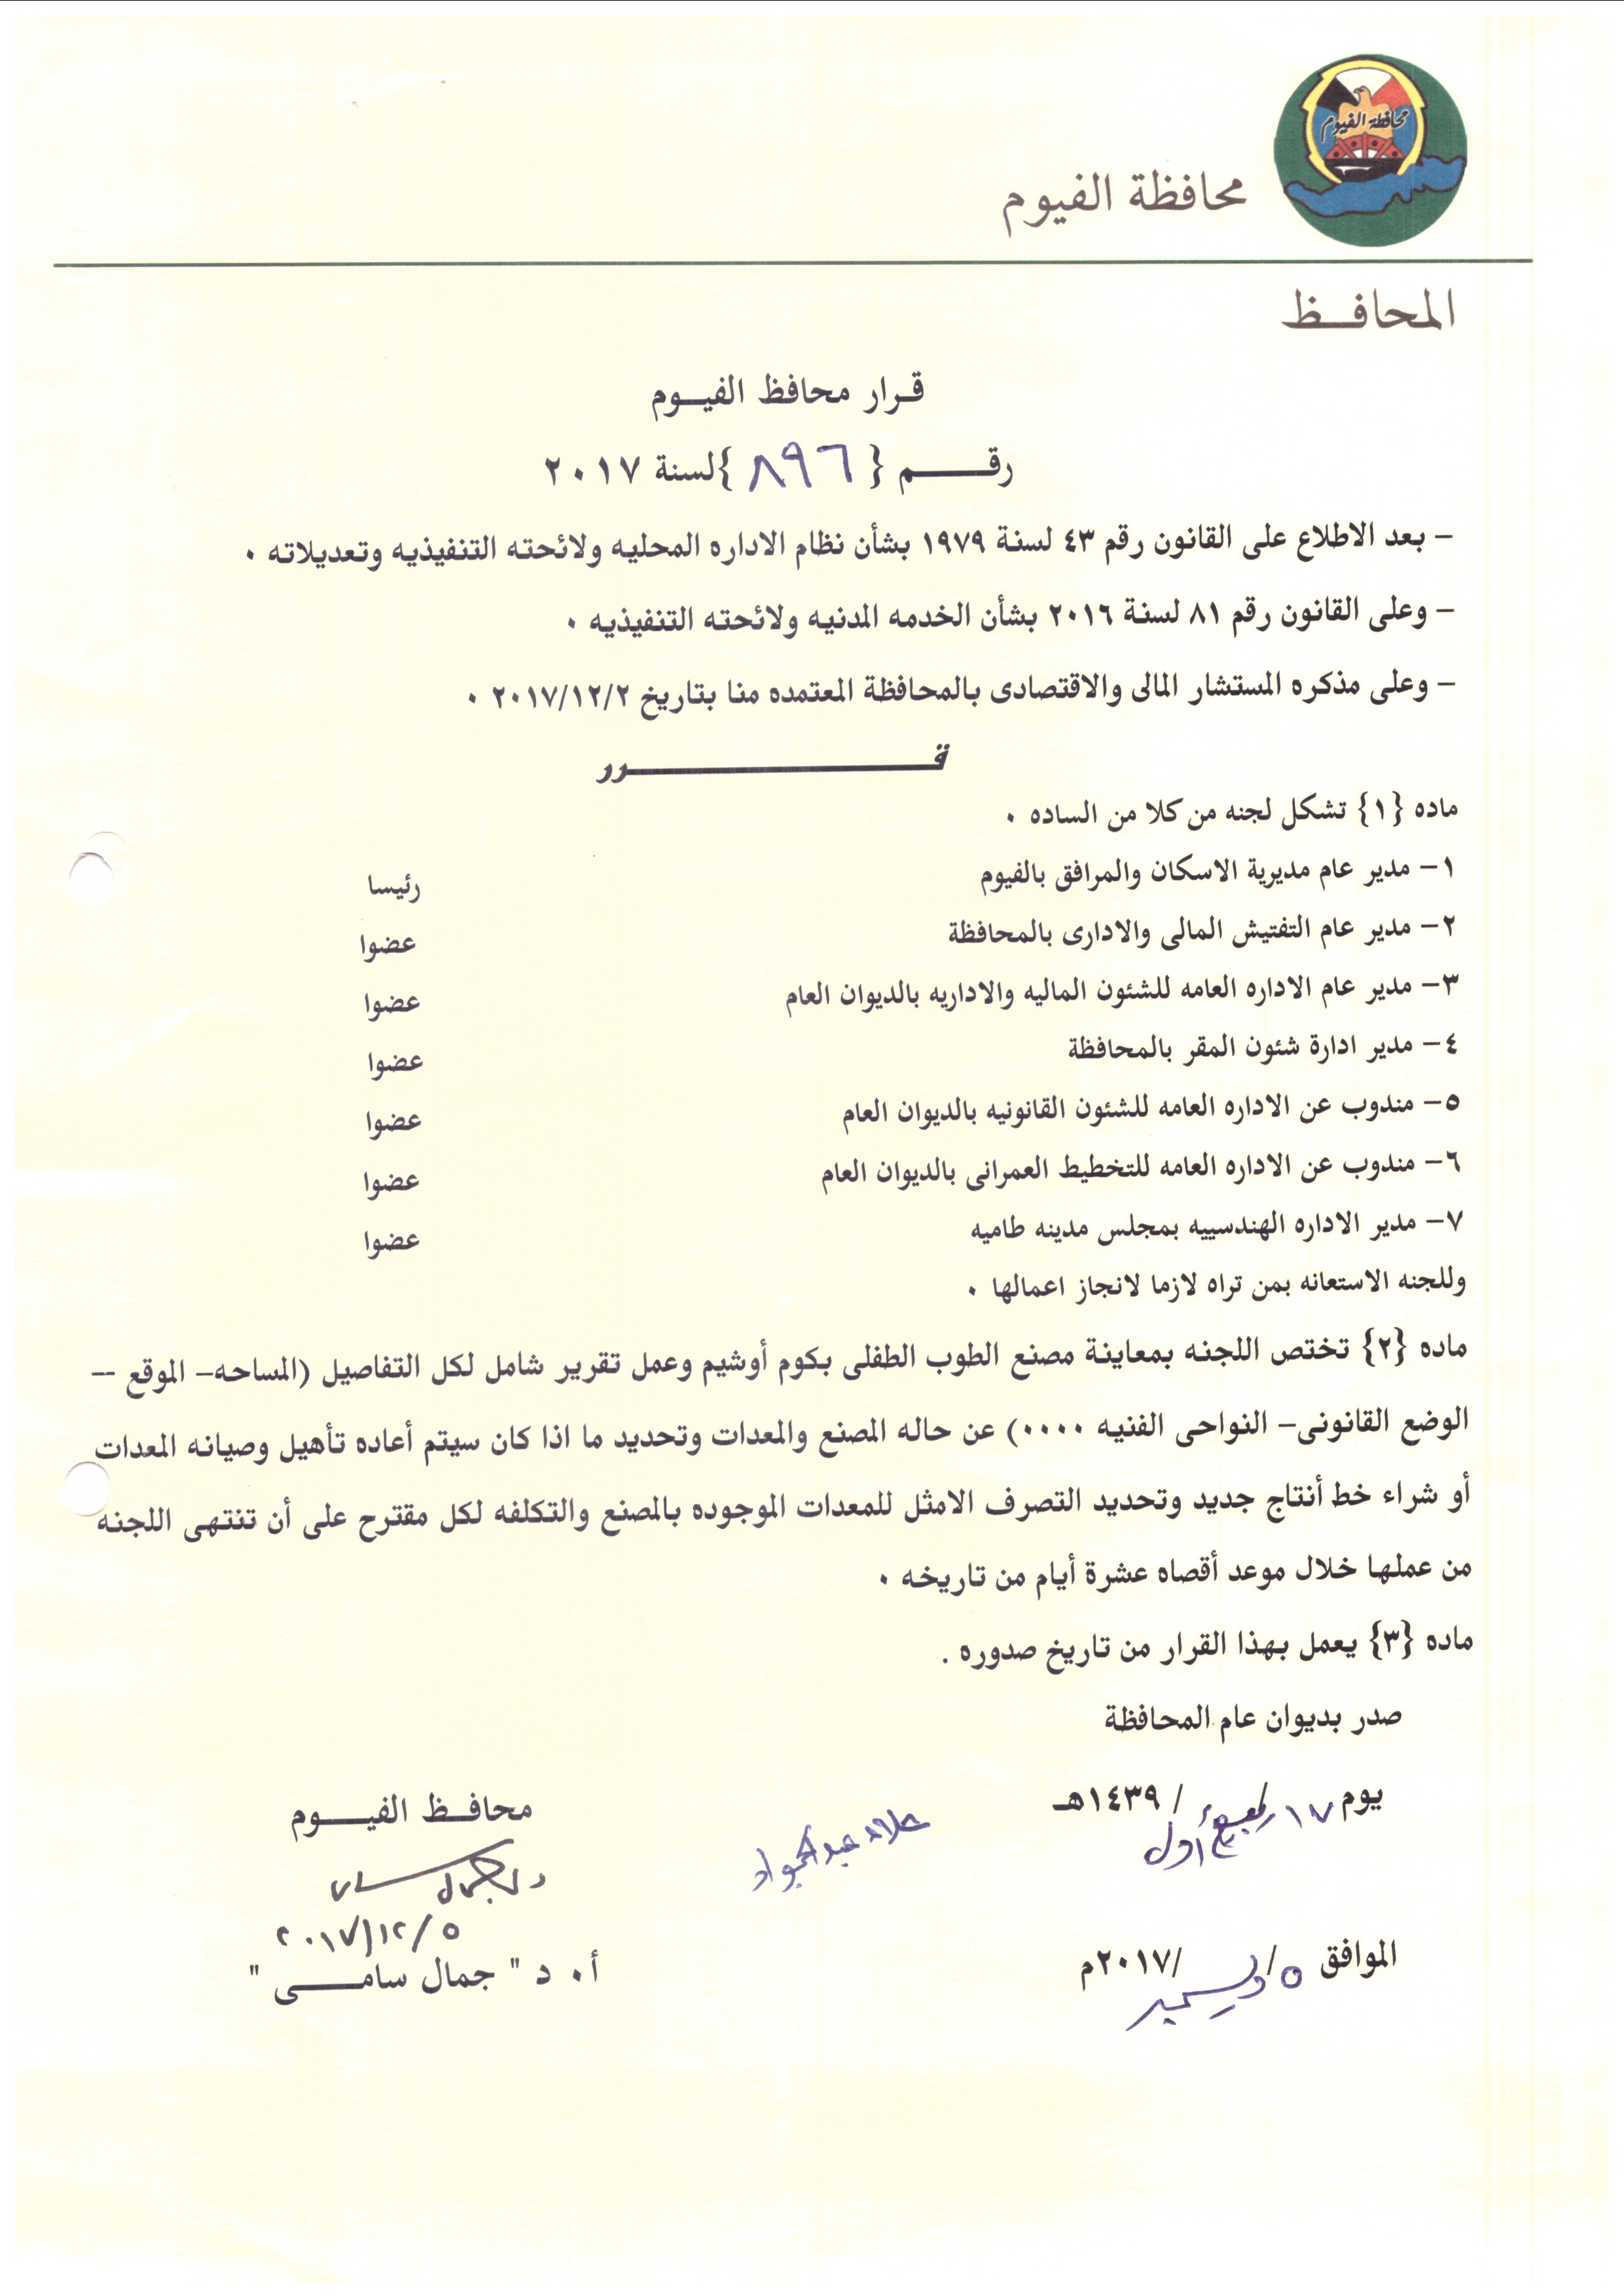 محافظة الفيوم
محافظة الفيوم
المحافــظ
قـرار محافظ الفيــوم
رقـــــم {٨٩٦} لسنة ٢٠١٧
– بعد الاطلاع على القانون رقم ٤٣ لسنة ١٩٧٩ بشأن نظام الاداره المحليه ولائحته التنفيذيه وتعديلاته ٠
– وعلى القانون رقم ٨١ لسنة ٢٠١٦ بشأن الخدمه المدنيه ولائحته التنفيذيه ٠
– وعلى مذكره المستشار المالى والاقتصادى بالمحافظة المعتمده منا بتاريخ ٢٠١٧/١٢/٢ ٠
قــــــــــــــرر
ماده {١} تشكل لجنه من كلا من الساده ٠
١– مدير عام مديرية الاسكان والمرافق بالفيوم رئيسا
٢– مدير عام التفتيش المالى والادارى بالمحافظة عضوا
٣– مدير عام الاداره العامه للشئون الماليه والاداريه بالديوان العام عضوا
٤– مدير ادارة شئون المقر بالمحافظة عضوا
٥– مندوب عن الاداره العامه للشئون القانونيه بالديوان العام عضوا
٦– مندوب عن الاداره العامه للتخطيط العمرانى بالديوان العام عضوا
٧– مدير الاداره الهندسييه بمجلس مدينه طاميه عضوا
وللجنه الاستعانه بمن تراه لازما لانجاز اعمالها ٠
ماده {٢} تختص اللجنه بمعاينة مصنع الطوب الطفلى بكوم أوشيم وعمل تقرير شامل لكل التفاصيل (المساحه– الموقع ––
الوضع القانونى– النواحى الفنيه ٠٠٠٠) عن حاله المصنع والمعدات وتحديد ما اذا كان سيتم أعاده تأهيل وصيانه المعدات
أو شراء خط أنتاج جديد وتحديد التصرف الامثل للمعدات الموجوده بالمصنع والتكلفه لكل مقترح على أن تنتهى اللجنه
من عملها خلال موعد أقصاه عشرة أيام من تاريخه ٠
ماده {٣} يعمل بهذا القرار من تاريخ صدوره .
صدر بديوان عام المحافظة
يوم ١٧ / ربيع أول / ١٤٣٩هـ
علاء عبدالجواد
محافــظ الفيــــوم
٢٠١٧/١٢/٥
الموافق ٥ / ديسمبر / ٢٠١٧م
أ٠ د " جمال سامــــى "